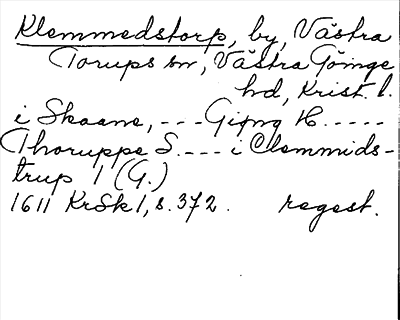 Klemmedstorp, by, Västra
Torups sn, Västra Göinge
hd, Krist. l.
i Skaane, --- Giøng H. -----
Thoruppe S. --- i Clemmids-
trup 1 (G.)
1611 KrSk 1, s. 372. regest.